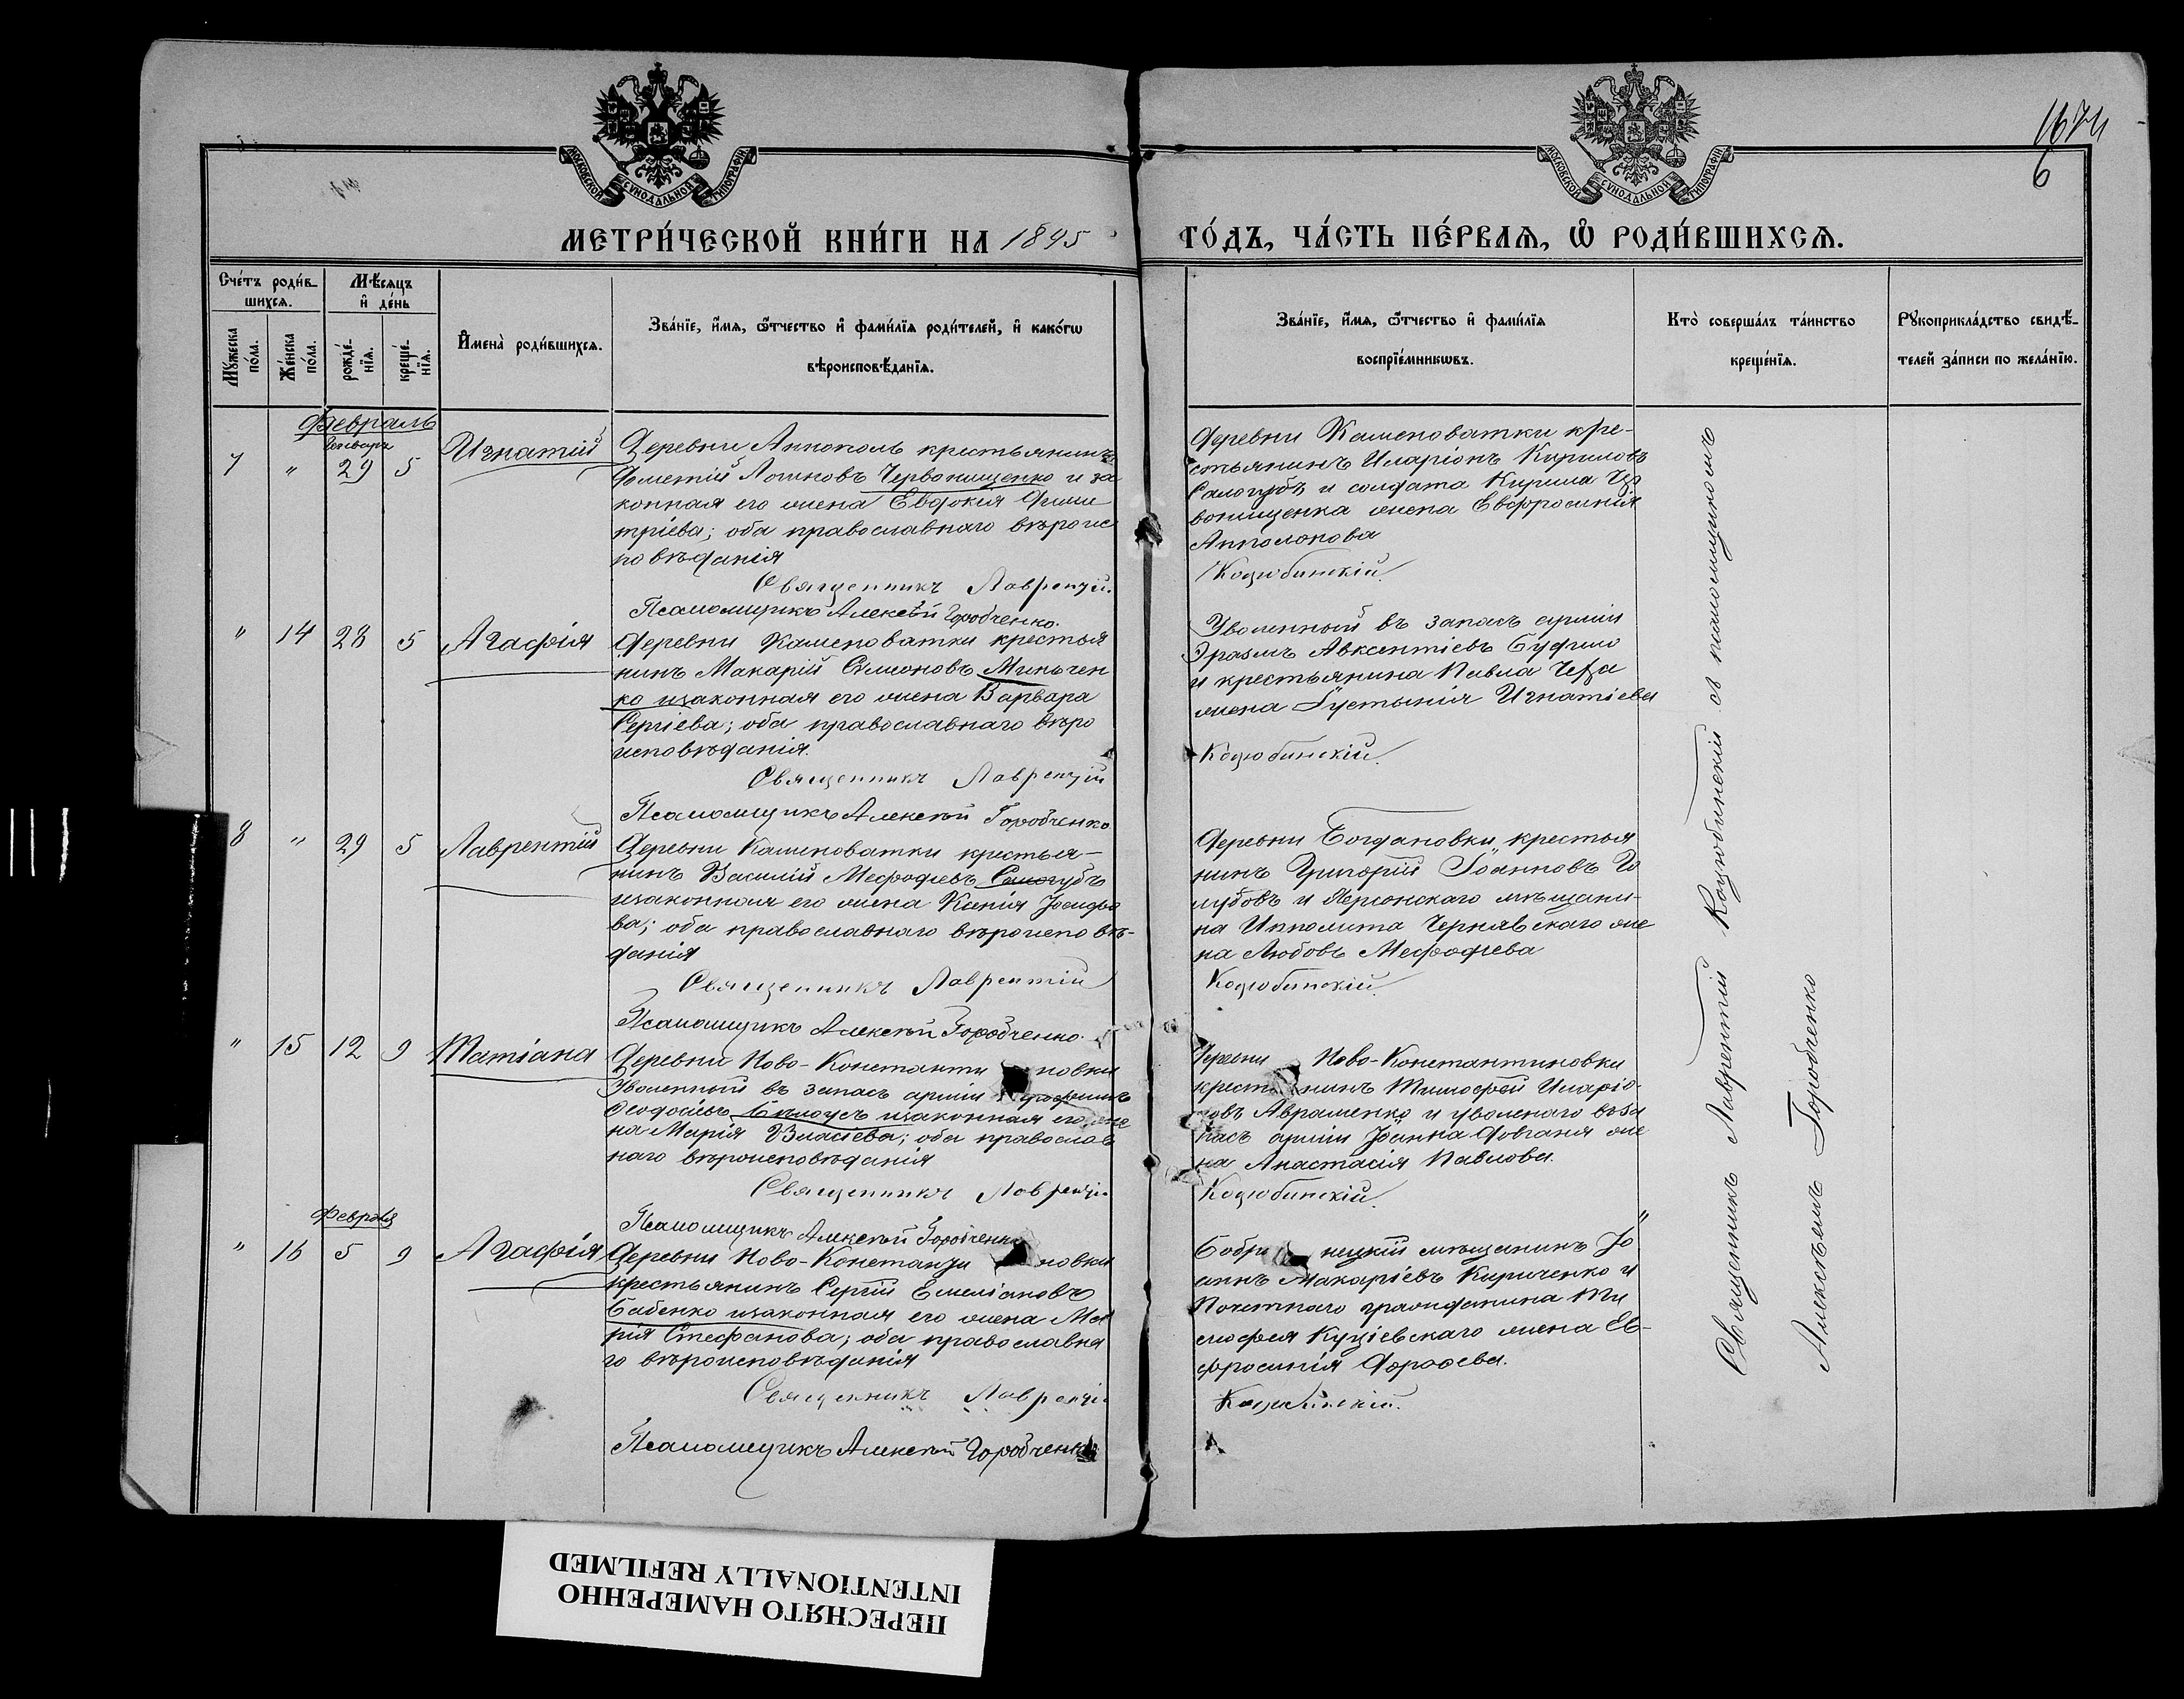 МОСКОВСКОЙ СѴНОДАЛЬНОЙ ТИПОГРАФІИ
МОСКОВСКОЙ СѴНОДАЛЬНОЙ ТИПОГРАФІИ
6
МЕТРИ́ЧЕСКОЙ КНИ́ГИ НА 1895
ГО́ДЪ, ЧА́СТЬ ПЕ́РВАѦ, Ѡ҆ РОДИ́ВШИХСѦ.
Сче́тъ роди́в-
шихсѧ.
Мѣ́сѧцъ
и҆ де́нь
Мꙋ́жеска по́ла.
Же́нска по́ла.
рожде́-нїѧ.
креще́-нїѧ.
И҆мена̀ роди́вшихсѧ.
Зва́нїе, и҆́мѧ, ѻ҆́тчество и҆ фами́лїѧ роди́телей, и҆ како́гѡ
вѣроисповѣ́данїѧ.
Зва́нїе, и҆́мѧ, ѻ҆́тчество и҆ фами́лїѧ
воспрїе́мникѡвъ.
Кто̀ соверша́лъ та́инство
креще́нїѧ.
Рꙋкоприкла́дство свидѣ́-
телей за́писи по жела́нїю.
Февраль
Генваря
7 " 29 5 Игнатій
Деревни Аннополь крестьянинъ
Дометій Логиновъ Червонищенко и за
конная его жена Евдокія Дими
тріева; оба православнаго вѣроис
повѣданія
Священникъ Лаврентій
Псаломщикъ Алексѣй Горобченко.
Деревни Каменоватки кре-
стьянинъ Иларіонъ Кириловъ
Самогубъ и солдата Кирила Чер
вонищенка жена Евфросинія
Апполонова
Коцюбинскій.
" 14 28 5 Агафія
Деревни Каменоватки крестья
нинъ Макарій Симоновъ Миньчен
ко изаконная его жена Варвара
Сергіева; оба православнаго вѣро
исповѣданія.
Священникъ Лаврентій
Псаломщикъ Алексѣй Горобченко
Уволенный въ запасъ арміи
Эразмъ Авксентіевъ
и крестьянина Павла
жена Густынія Игнатіева
Коцюбинскій.
8 " 29 5 Лаврентій
Деревни Каменоватки крестья-
нинъ Василій Мефодіевъ Самогубъ
изаконная его жена Ксенія Іосифо
ва; оба православнаго вѣроисповѣ-
данія
Священникъ Лаврентій
Псаломщикъ Алексѣй Горобченко.
Деревни Богдановки крестья
нинъ Григорій Іоанновъ Го
лубовъ и Херсонскаго мѣщани-
на Ипполита Чернявскаго же
на Любовь Мефодіева
Коцюбинскій.
" 15 12 9 Татіана
Деревни Ново-Константиновки
Уволенный въ запасъ арміи
Ѳеодосіевъ Бѣлоусъ изаконная его же
на Марія Власіева; оба православ
наго вѣроисповѣданія
Священникъ Лаврентій
Псаломщикъ Алексѣй Горобченко
Деревни Ново-Константиновки
крестьянинъ Тимофей Иларіо-
новъ Авраменко и уволенаго въ за
пасъ арміи Іоанна Довганя же
на Анастасія Павлова.
Коцюбинскій.
Февраля
" 16 5 9 Агафія
Деревни Ново-Константиновки
крестьянинъ Сергій Емеліановъ
Бабенко изаконная его жена Ма
рія Стефанова; оба православна
го вѣроисповѣданія
Священникъ Лаврентій
Псаломщикъ Алексѣй Горобченко
Бобринецкій мѣщанинъ Іо
аннъ Макаріевъ Кириченко и
Почетнаго гражданина Ти
мофея Кузіевскаго жена Ев-
фросинія
Коцюбинскій.
Священникъ Лаврентій Коцюбинскій съ псаломщикомъ
Алексѣемъ Горобченко
ПЕРЕСНЯТО НАМЕРЕННО
INTENTIONALLY REFILMED